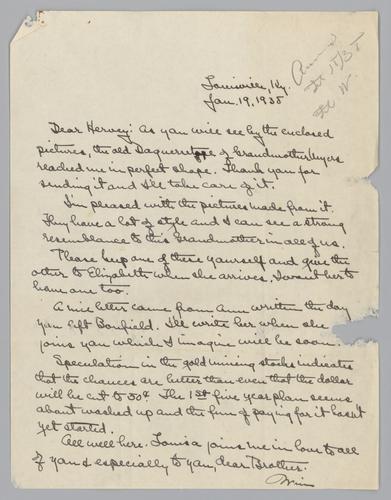 Louisville, Ky.
Jan. 19, 1935
Dear Hervey: As you will see by the enclosed
pictures, the old Daguerrotype of Grandmother Myers
reached me in perfect shape. Thank you for
sending it and I'll take care of it.
I'm pleased with the pictures made from it.
They have a lot of style and I can see a strong
resemblance to this Grandmother in all of us.
Please keep one of these yourself and give the
other to Elizabeth when she arrives. I want her to
have one too.
A nice letter came from Ann written the day
you left Banfield. I'll write her when she
joins you which I imagine will be soon.
Speculation in the gold mining stocks indicates
that the chances are better than even that the dollar
will be cut to 50¢. The 1st five year plan seems
about washed up and the fun of paying for it hasn't
yet started.
All well here. Louisa joins me in love to all
of you & especially to you dear Brother.